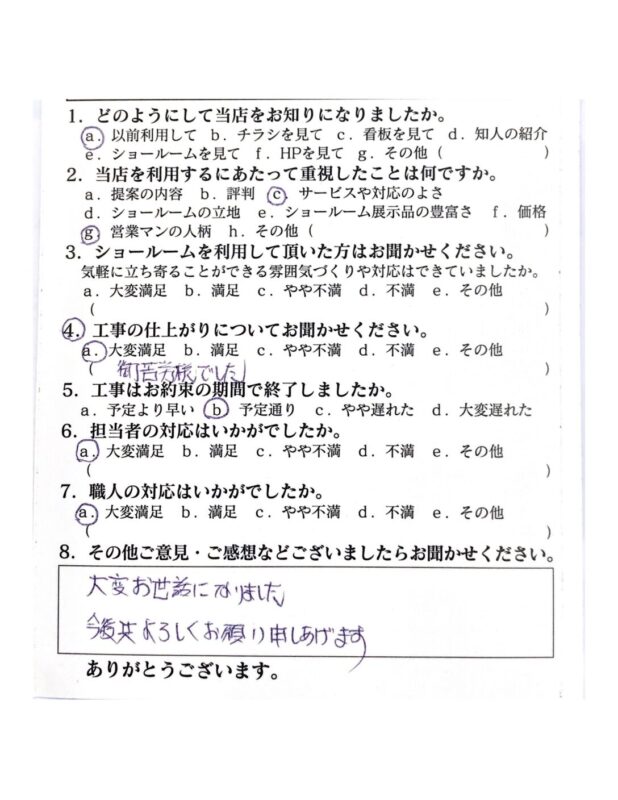 1．どのようにして当店をお知りになりましたか。
a．以前利用して b．チラシを見て c．看板を見て d．知人の紹介
e．ショールームを見て f．HPを見て g．その他（　　　　　　　）
2．当店を利用するにあたって重視したことは何ですか。
a．提案の内容 b．評判 c．サービスや対応のよさ
d．ショールームの立地 e．ショールーム展示品の豊富さ f．価格
g．営業マンの人柄 h．その他（　　　　　　　）
3．ショールームを利用して頂いた方はお聞かせください。
気軽に立ち寄ることができる雰囲気づくりや対応はできていましたか。
a．大変満足 b．満足 c．やや不満 d．不満 e．その他
（　　　　　　　）
4．工事の仕上がりについてお聞かせください。
a．大変満足 b．満足 c．やや不満 d．不満 e．その他
（ 御苦労様でした ）
5．工事はお約束の期間で終了しましたか。
a．予定より早い b．予定通り c．やや遅れた d．大変遅れた
6．担当者の対応はいかがでしたか。
a．大変満足 b．満足 c．やや不満 d．不満 e．その他
（　　　　　　　）
7．職人の対応はいかがでしたか。
a．大変満足 b．満足 c．やや不満 d．不満 e．その他
（　　　　　　　）
8．その他ご意見・ご感想などございましたらお聞かせください。
大変お世話になりました
今後共よろしくお願い申しあげます
ありがとうございます。